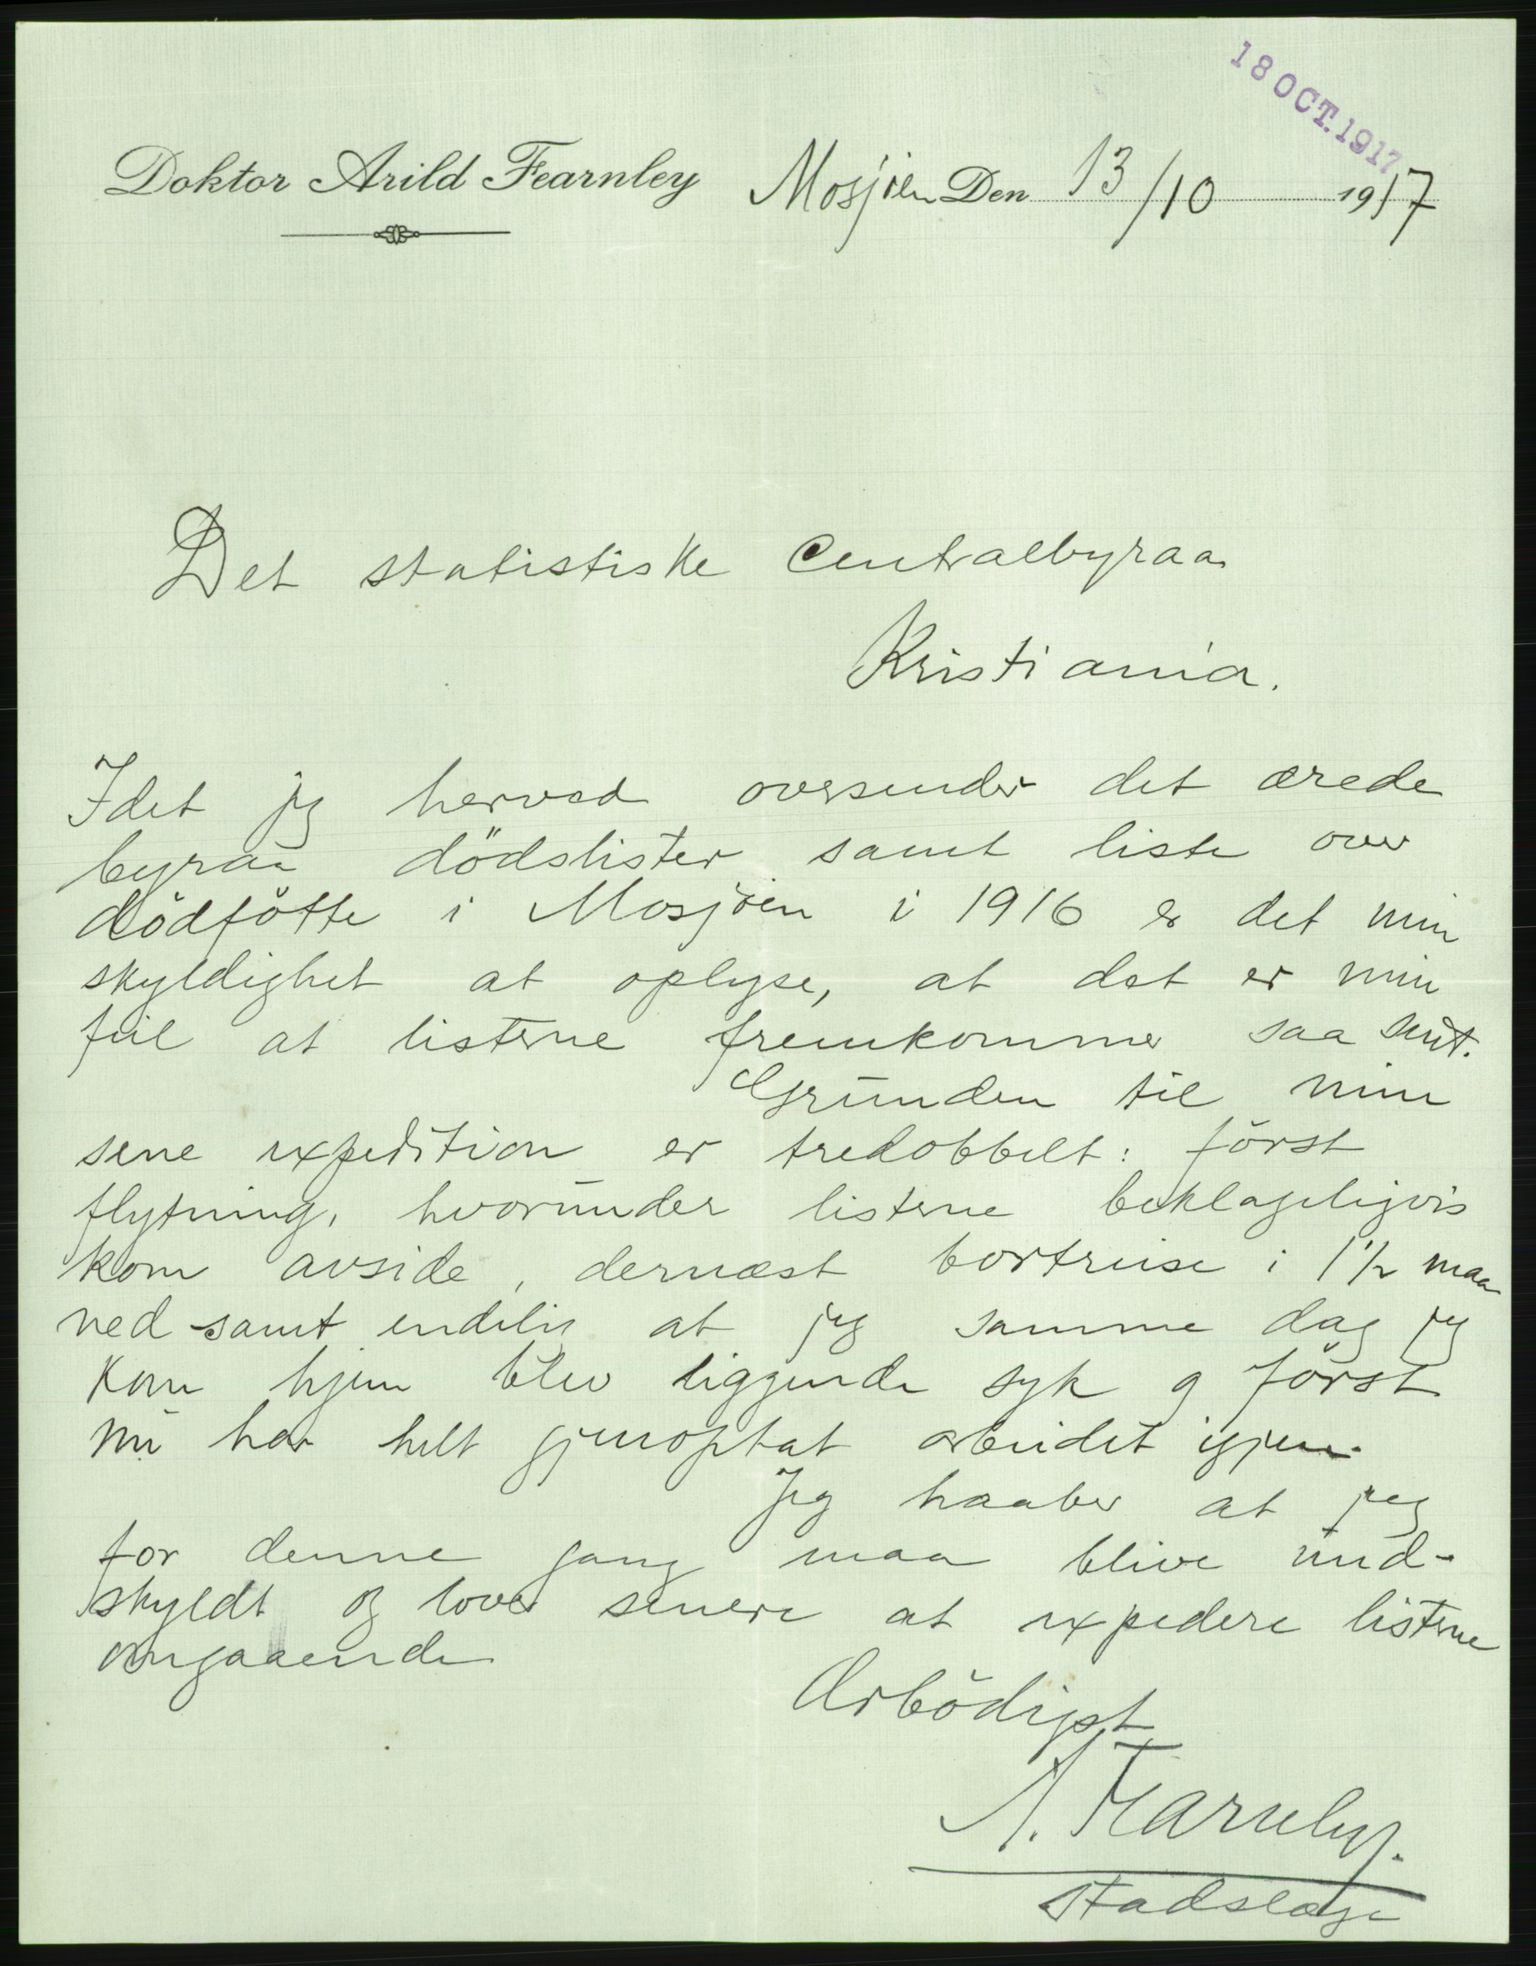 18 OCT. 1917
Doktor Arild Fearnley Mosjöen Den 13/10 1917
Det statistiske Centralbyraa
Kristiania.
Idet jeg herved oversender det ærede
byraa dödslister samt liste over
dödfötte i Mosjöen i 1916 er det min
skyldighet at oplyse, at det er min
feil at listerne fremkommer saa sent.
Grunden til min
sene expedition er tredobbelt: först
flytning, hvorunder listerne beklageligvis
kom avside, dernæst bortreise i 1½ maa
ned samt endelig at jeg samme dag jeg
kom hjem blev liggende syk og först
nu har helt gjenoptat arbeidet igjen.
Jeg haaber at jeg
for denne gang maa blive und-
skyldt og lover senere at expedere listerne
omgaaende
Ærbödigst
A. Fearnley.
stadslæge